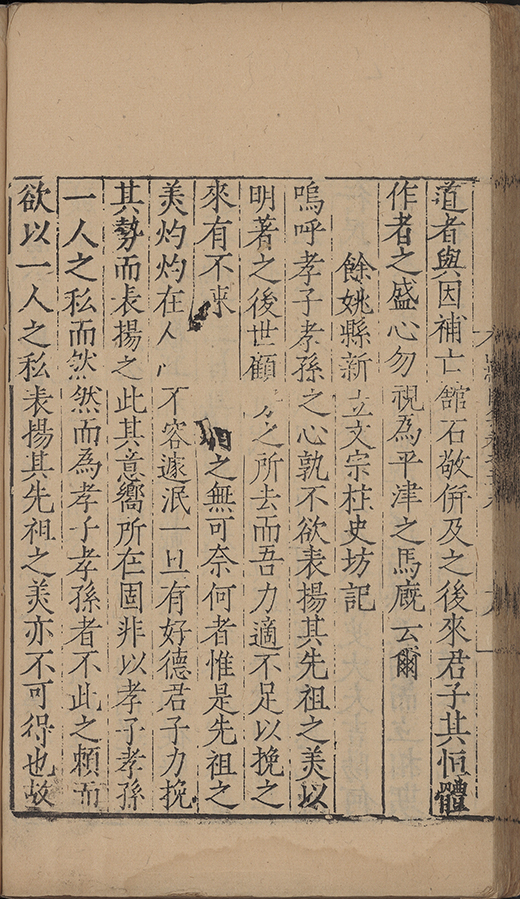 道者與因補亡館石敬併及之後來君子其恒體
作者之盛心勿視為平津之馬廐云爾
餘姚縣新立文宗柱史坊記
嗚呼孝子孝孫之心孰不欲表揚其先祖之美以
明著之後世顧之所去而吾力適不足以挽之
來有不之無可奈何者惟是先祖之
美灼灼在人不容遽泯一旦有好德君子力挽
其勢而表揚之此其意嚮所在固非以孝子孝孫
一人之私而然然而為孝子孝孫者不此之賴而
欲以一人之私表揚其先祖之美亦不可得也故